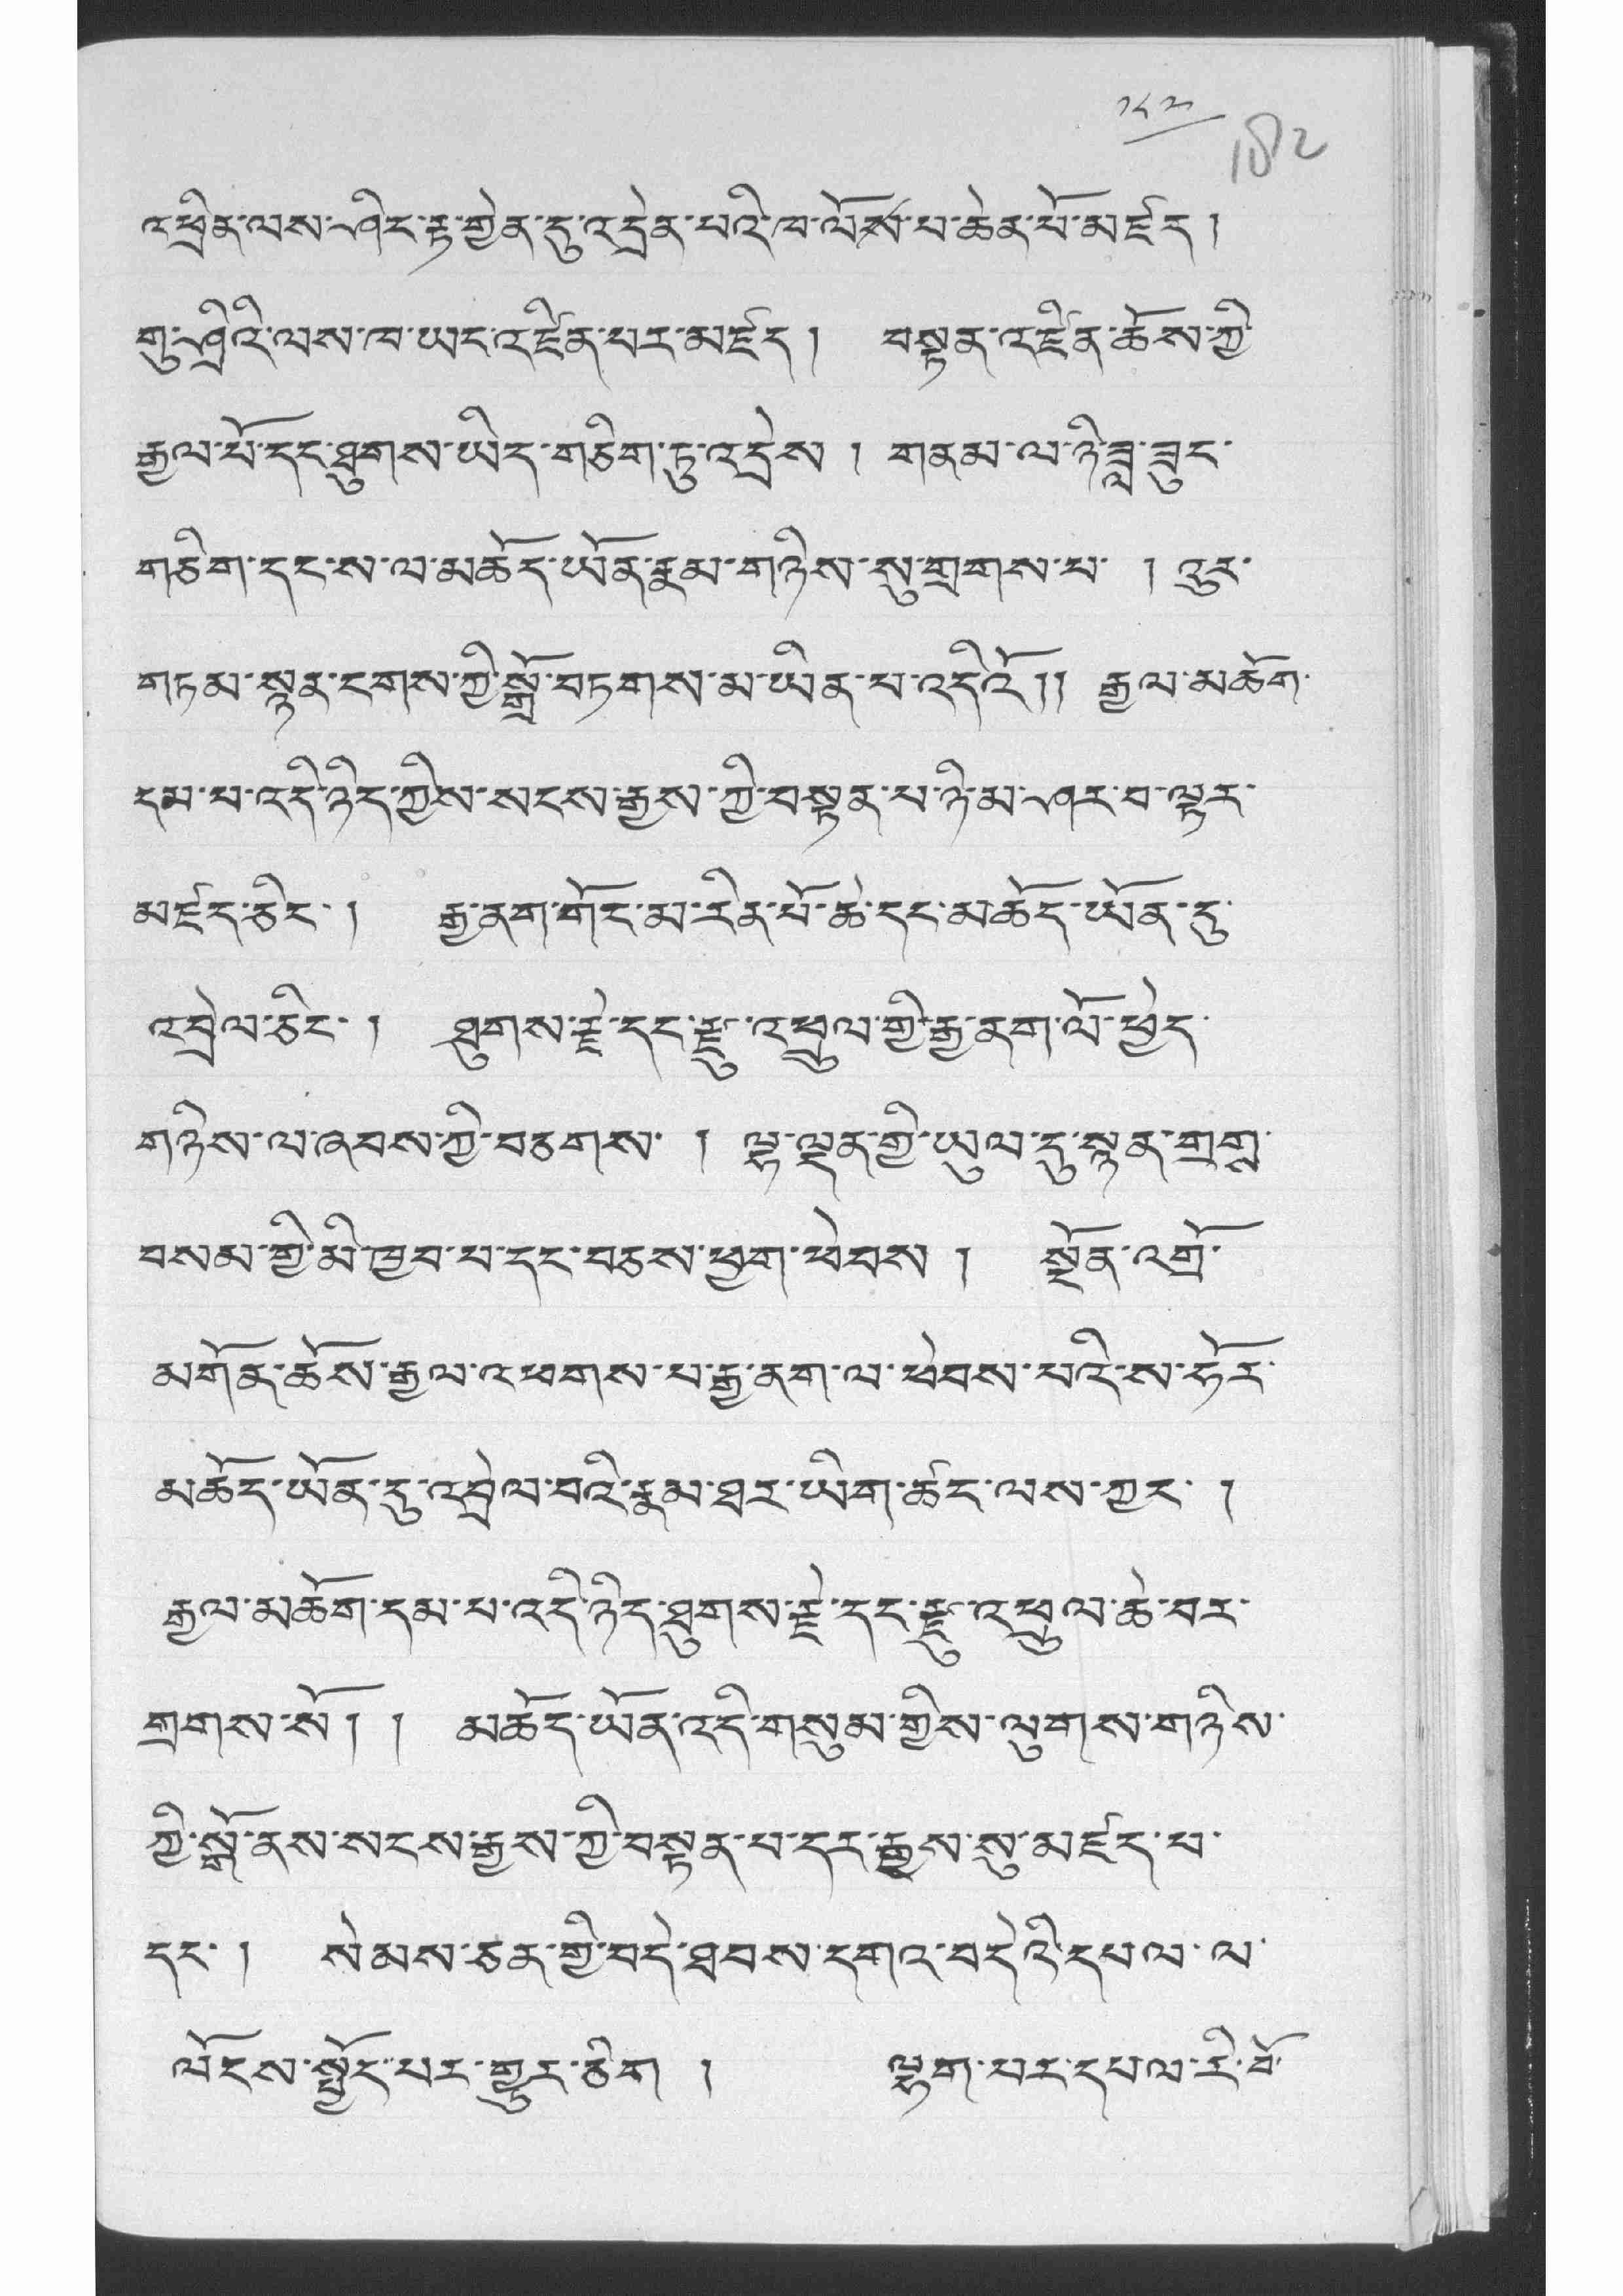 ༡༨༢
182
འཕྲིན་ལས་ཤིང་རྟ་གྱེན་དུ་འདྲེན་པའི་ཁ་ལོས་པ་ཆེན་པོ་མཛད །
གུ་ཤྲིའི་ལས་ཁ་ཡང་འཛིན་པར་མཛད ། བསྟན་འཛིན་ཆོས་ཀྱི
རྒྱལ་པོ་དང་ཐུགས་ཡིད་གཅིག་ཏུ་འདྲེས ། གནམ་ལ་ཉི་ཟླ་ཟུང་
གཅིག་དང་ས་ལ་མཆོད་ཡོན་རྣམ་གཉིས་སུ་གྲགས་པ་ ། འུར་
གཏམ་སྙན་ངགས་ཀྱི་སྒྲོ་བཏགས་མ་ཡིན་པ་འདིའོ །། རྒྱལ་མཆོག་
དམ་པ་འདི་ཉིད་ཀྱིས་སངས་རྒྱས་ཀྱི་བསྟན་པ་ཉི་མ་ཤར་བ་ལྟར་
མཛད་ཅིང་ ། རྒྱ་ནག་གོང་མ་རིན་པོ་ཆེ་དང་མཆོད་ཡོན་དུ་
འབྲེལ་ཅིང་ ། ཐུགས་རྗེ་དང་རྫུ་འཕྲུལ་གྱི་རྒྱ་ནག་ལོ་ཕྱེད་
གཉིས་ལ་ཞབས་ཀྱི་བཅགས་ ། ལྷ་ལྡན་གྱི་ཡུལ་དུ་སྙན་གྲགས་
བསམ་གྱི་མི་ཁྱབ་པ་དང་བཅས་ཕྱག་ཕེབས ། སྔོན་འགྲོ་
མགོན་ཆོས་རྒྱལ་འཕགས་པ་རྒྱ་ནག་ལ་ཕེབས་པའི་ས་ཧོར་
མཆོད་ཡོན་དུ་འབྲེལ་བའི་རྣམ་ཐར་ཡིག་ཚང་ལས་ཀྱང་ །
རྒྱལ་མཆོག་དམ་པ་འདི་ཉིད་ཐུགས་རྗེ་དང་རྫུ་འཕྲུལ་ཆེ་བར་
གྲགས་སོ །། མཆོད་ཡོན་འདི་གསུམ་གྱིས་ལུགས་གཉིས་
ཀྱི་སྒོ་ནས་སངས་རྒྱས་ཀྱི་བསྟན་པ་དར་རྒྱས་སུ་མཛད་པ་
དང་ ། སེམས་ཅན་གྱི་བདེ་ཐབས་དགའ་བདེའི་དཔལ་ལ་
ལོངས་སྤྱོད་པར་གྱུར་ཅིག ། ལྷག་པར་དཔལ་རི་བོ་